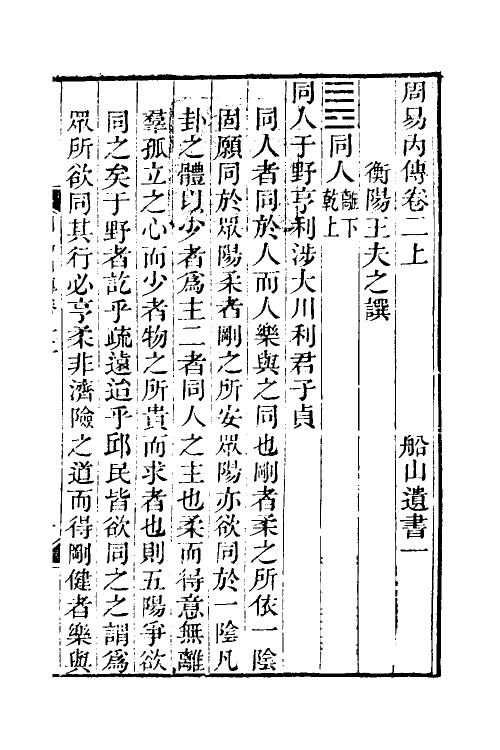 周易內傳卷二上　船山遺書一
衡陽王夫之譔
䷌同人 離下乾上
同人于野亨利涉大川利君子貞
同人者同於人而人樂與之同也剛者柔之所依一陰
固願同於眾陽柔者剛之所安眾陽亦欲同於一陰凡
卦之體以少者為主二者同人之主也柔而得意無離
羣孤立之心而少者物之所貴而求者也則五陽爭欲
同之矣于野者訖乎疏遠迨乎邱民皆欲同之之謂為
眾所欲同其行必亨柔非濟險之道而得剛健者樂與